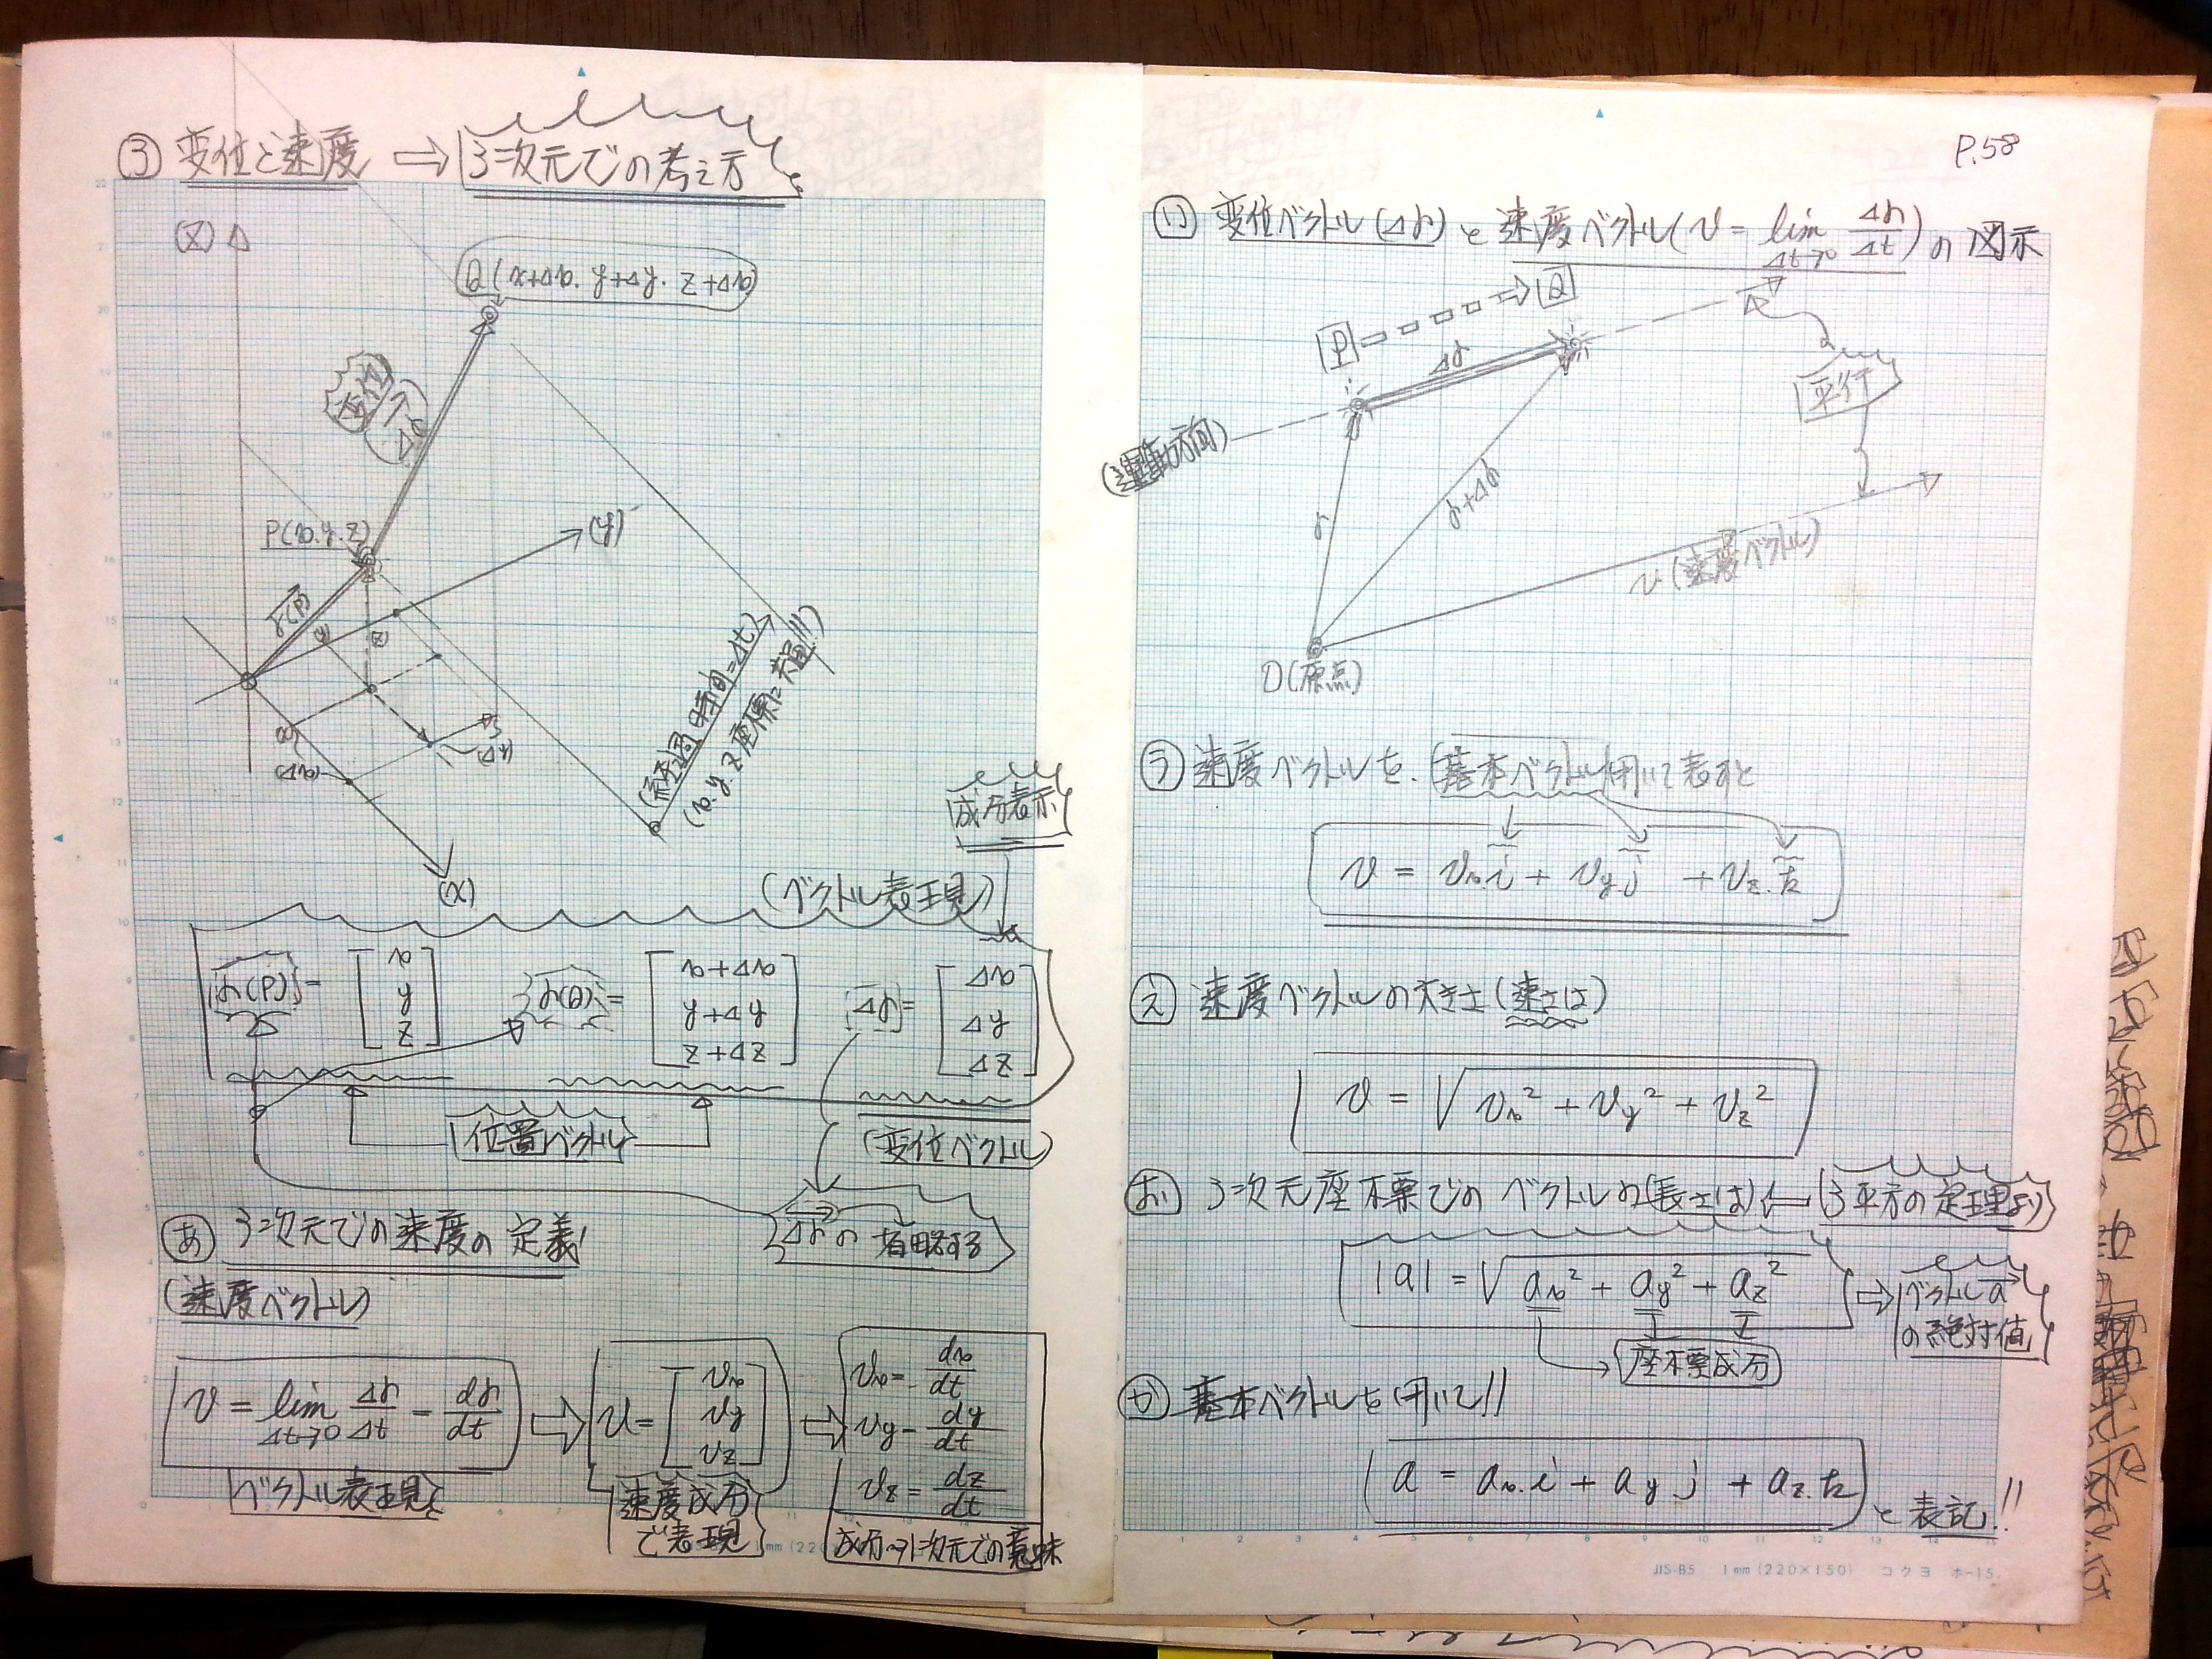 ③ 変位と速度 ⇒ 3次元での考え方
(Z)
Q(x+Δx. y+Δy. z+Δx)
変位
(Δr)
P(x.y.z)
(y)
r(P)
(y)
(z)
(x)
(Δx)
(Δy)
(X)
(経過時間=Δt)
(x.y.z座標に共通!!)
成分表示
(ベクトル表現)
r(P) = [x y z] r(Q) = [x+Δx y+Δy z+Δz] Δr = [Δx Δy Δz]
位置ベクトル
(変位ベクトル)
Δrの→省略する
あ 3次元での速度の定義!
(速度ベクトル)
v = lim Δt→0 Δr/Δt = dr/dt ⇒ v = [vx vy vz] ⇒ vx = dx/dt
vy = dy/dt
vz = dz/dt
ベクトル表現
速度成分で表現
成分→1次元での意味
P.58
い 変位ベクトル(Δr)と速度ベクトル(v = lim Δt→0 Δr/Δt)の図示
P ⇒ Q
Δr
平行
(運動方向)
r
r+Δr
v(速度ベクトル)
O(原点)
う 速度ベクトルを.基本ベクトル用いて表すと
v = vx.i + vy.j + vz.k
え 速度ベクトルの大きさ(速さは)
v = √vx² + vy² + vz²
お 3次元座標でのベクトルの(長さは) ⇐ (3平方の定理より)
|a| = √ax² + ay² + az² ⇒ ベクトルa の絶対値
座標成分
か 基本ベクトルを用いて!!
a = ax.i + ay j + az.k と表記!!
JIS-B5 1mm(220×150) コクヨ ホ-15